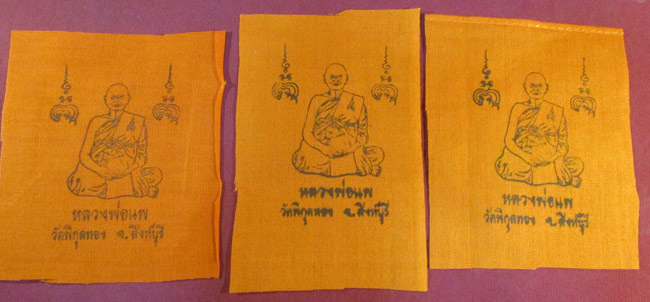 หลวงพ่อแพ
วัดพิกุลทอง จ.สิงห์บุรี
หลวงพ่อแพ
วัดพิกุลทอง จ.สิงห์บุรี
หลวงพ่อแพ
วัดพิกุลทอง จ.สิงห์บุรี